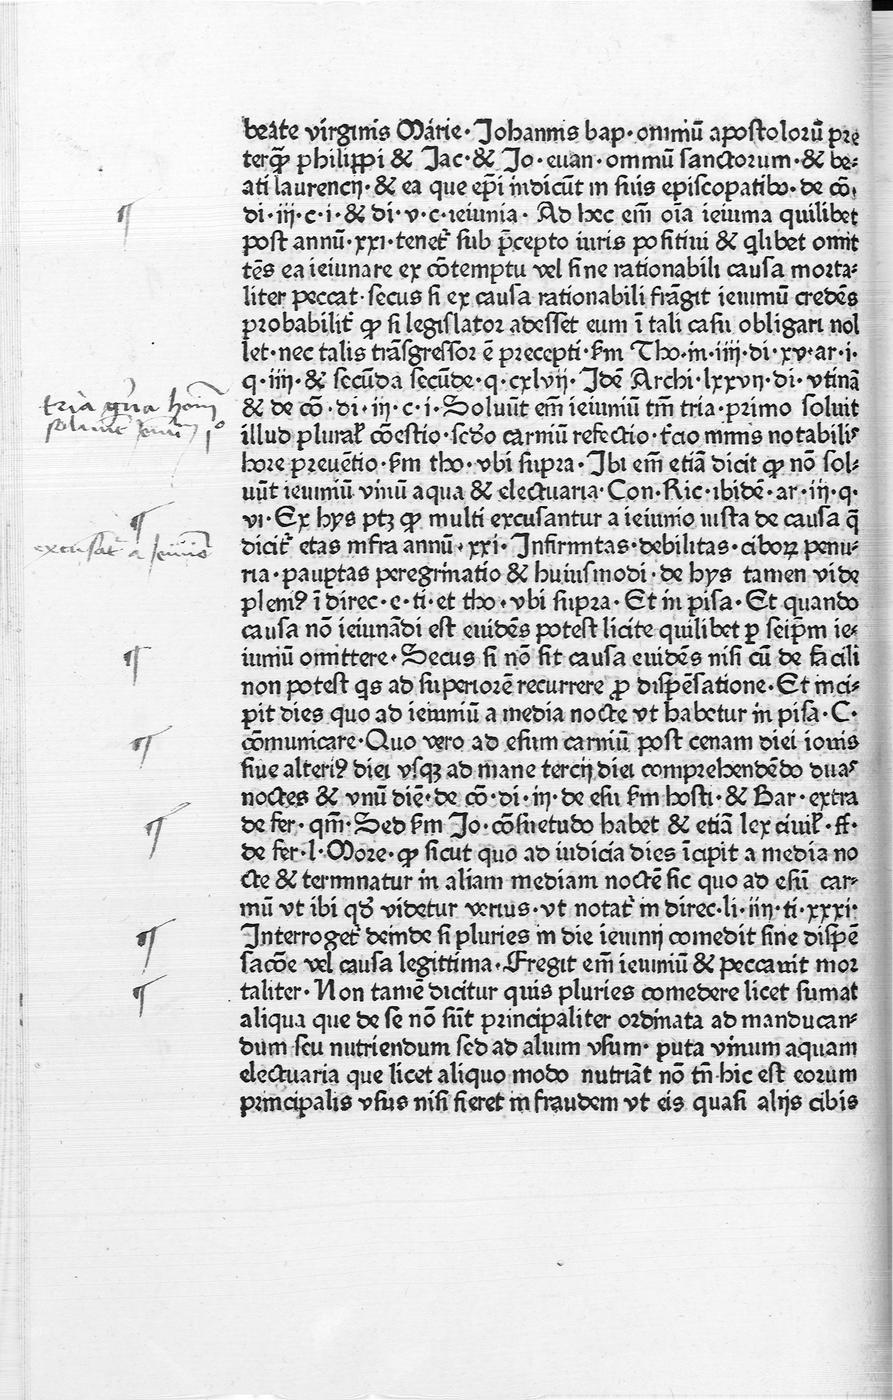 beate virginis Marie· Johannis bap· omniū apostolorū pre
terq̄ philippi & Jac·& Jo·euan·omniū sanctorum·& be⸗
ati laurencij·& ea que ep̄i indicūt in suis episcopatibꝰ·de cō·
di·iij·c·i·& di·v·c·ieiunia· Ad hec em̄ oīa ieiunia quilibet
post annū·xxi·tenet᷑ sub p̄cepto iuris positiui & q̄libet omit
tēs ea ieiunare ex cōtemptu vel sine rationabili causa morta⸗
liter peccat·secus si ex causa rationabili frāgit ieiuniū credēs
probabilit᷑ ꝙ si legislator adesset eum ī tali casu obligari nol
let·nec talis trāsgressor ē precepti·ẜm Tho·in·iiij·di·xv·ar·i·
q·iiij·& secūda secūde·q·cxlvij·Idē Archi·lxxvij·di·vtinā
& de cō·di·iij·c·i·Soluūt em̄ ieiuniū tm̄ tria·primo soluit
illud plural᷑ cōestio·scd̄o carniū refectio·t᷑cio nimis notabilis
hore preuētio·ẜm tho·vbi supra·Ibi em̄ etiā dicit ꝙ nō sol⸗
uūt ieiuniū vinū aqua & electuaria·Con·Ric·ibidē·ar·iij·q·
vi·Ex hys ptꝫ ꝙ multi excusantur a ieiunio iusta de causa q̄
dicit᷑ etas infra annū·xxi·Infirmitas·debilitas·ciboꝝ penu⸗
ria·paup̱tas peregrinatio & huiusmodi·de hys tamen vide
pleniꝰ ī direc·e·ti·et tho·vbi supra·Et in pisa·Et quando
causa nō ieiunādi est euidēs potest licite quilibet ꝑ seip̄m ie⸗
iuniū omittere·Secus si nō sit causa euidēs nisi cū de facili
non potest qs ad superiorē recurrere ꝓ dispēsatione·Et inci⸗
pit dies quo ad ieiuniū a media nocte vt habetur in pisa·C·
cōmunicare·Quo vero ad esum carniū post cenam diei iouis
siue alteriꝰ diei vsqꝫ ad mane tercij diei comprehendēdo duas
noctes & vnū diē·de cō·di·iij·de esu ẜm hosti·& Bar·extra
de fer·qm̄·Sed ẜm Jo·cōsuetudo habet & etiā lex ciuil᷑·ff·
de fer·l·More·ꝙ sicut quo ad iudicia dies īcipit a media no
cte & terminatur in aliam mediam noctē sic quo ad esū car⸗
niū vt ibi qd̄ videtur verius·vt notat᷑ in direc·li·iiij·ti·xxxi·
Interroget᷑ deinde si pluries in die ieiunij comedit sine dispē
sacōe vel causa legittima·Fregit em̄ ieiuniū & peccauit mor
taliter·Non tamē dicitur quis pluries comedere licet sumat
aliqua que de se nō sūt principaliter ordinata ad manducan⸗
dum seu nutriendum sed ad alium vsum· puta vinum aquam
electuaria que licet aliquo modo nutriāt nō tn̄·hic est eorum
principalis vsus nisi fieret in fraudem vt eis quasi alijs cibis
tria
excusat᷑ a ieiunio